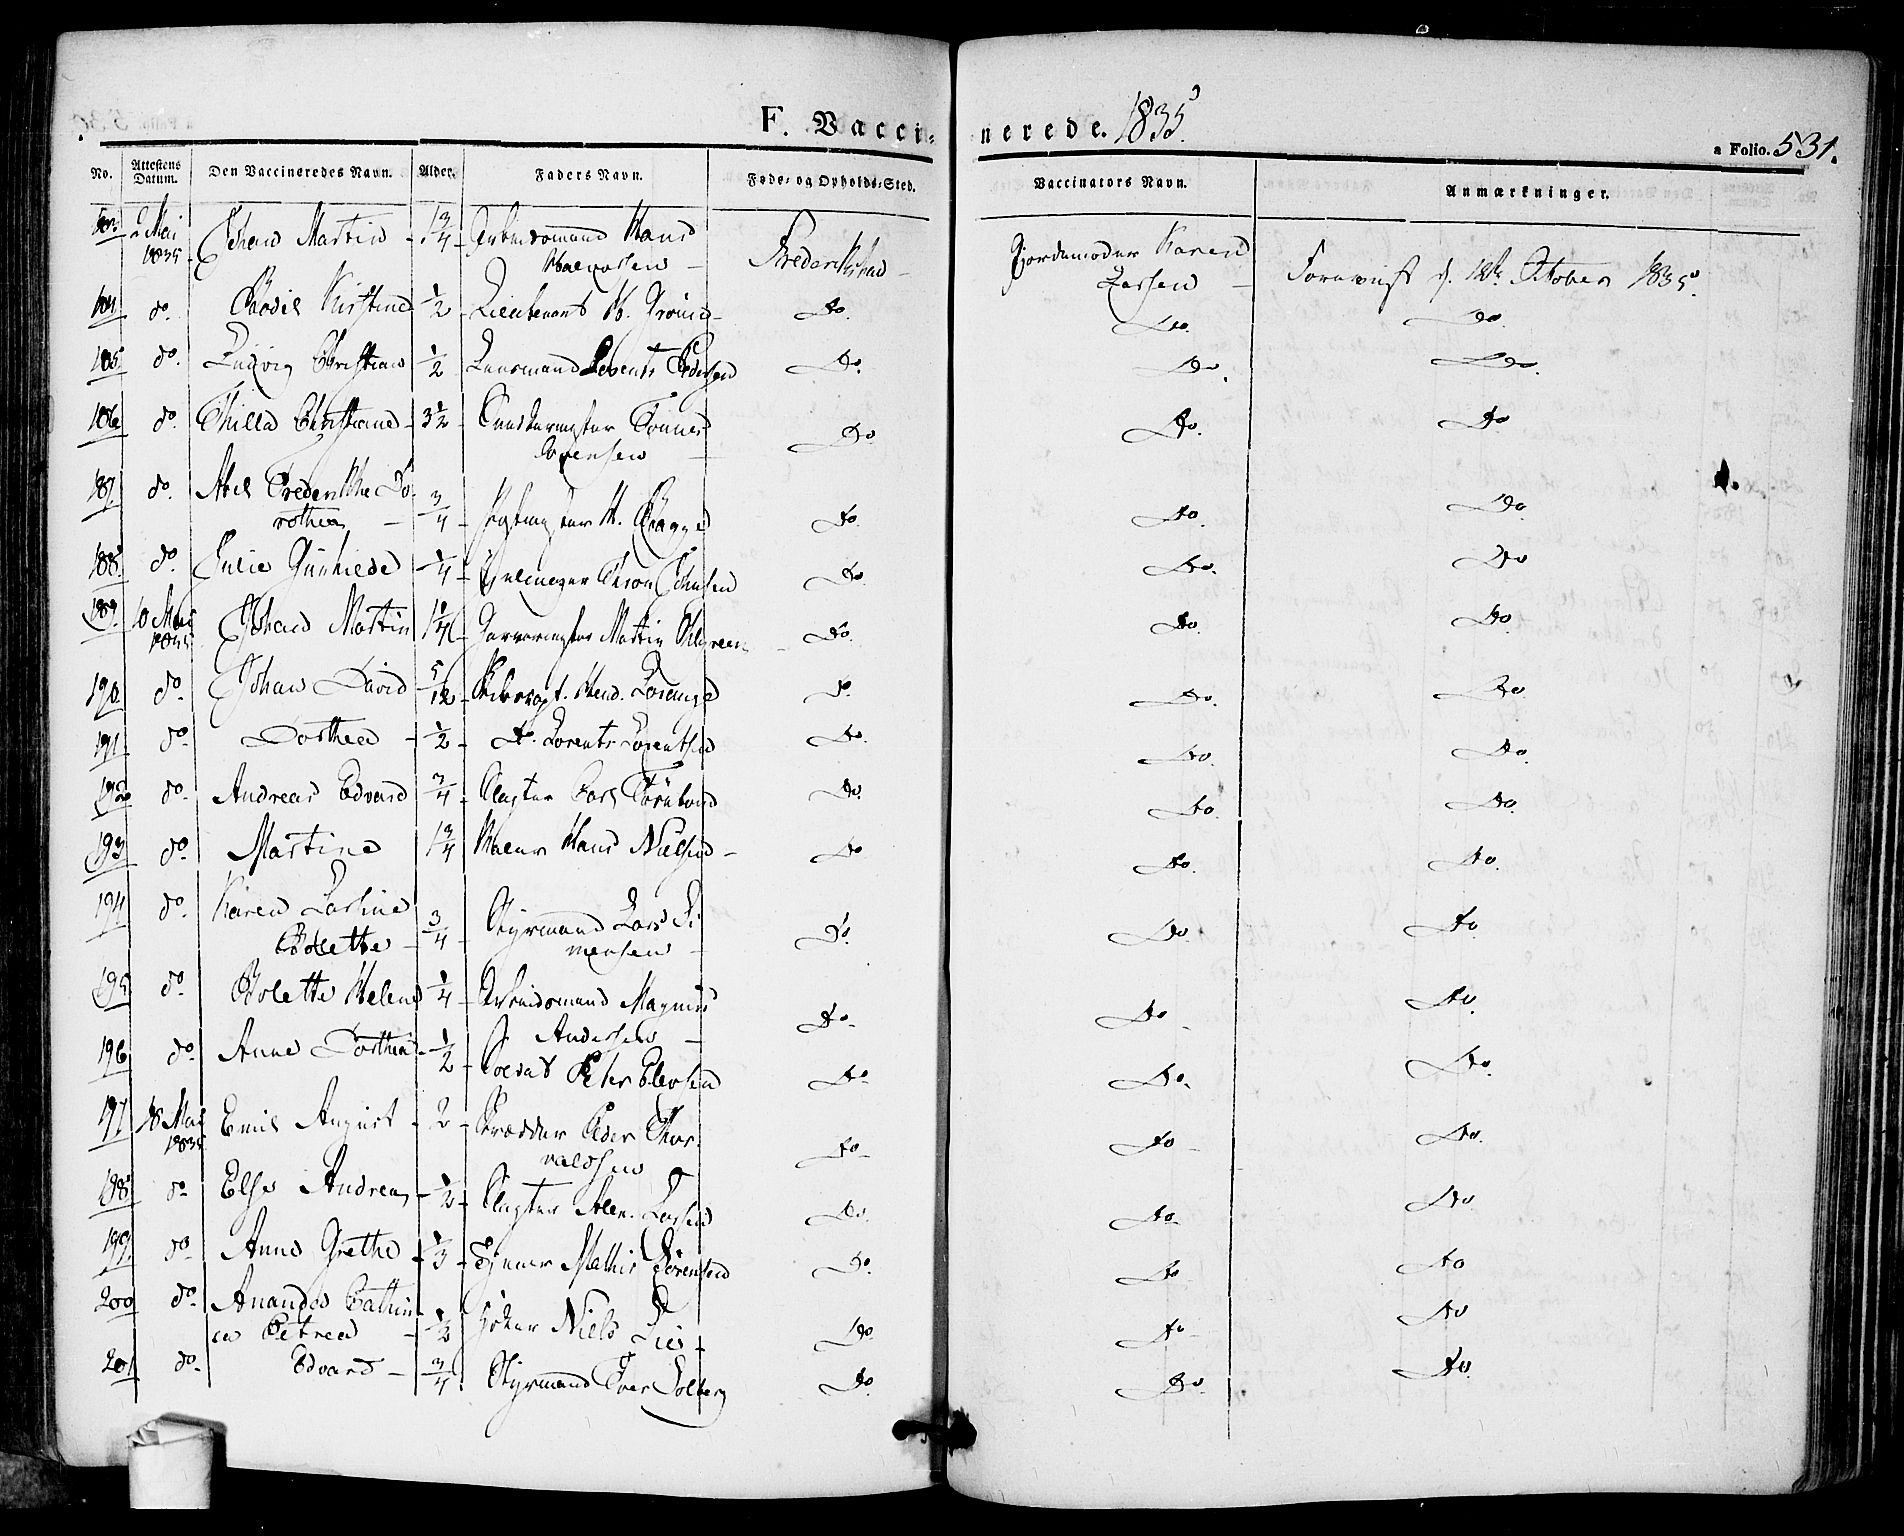 F. Vacci= nerede. 1835
a Folio. 531.
No. Attestens Datum. Den Vaccineredes Navn. Alder. Faders Navn. Føde= og Opholds=Sted. Vaccinators Navn. Anmærkninger.
183. 2 Mai 1835 Johan Martin 1 3/4 Arbeidsmand Hans Fredrikstad Jordemoder Karen Larsen Foreviist d. 18de October 1835.
184 do. Bodil Kirstine 1/2 Lieutenant H. Do. Do. Do.
185 do. Ludvig Christian 1/2 Lensmand Pedersen Do. Do. Do.
186 do. Christiane 3 1/2 Tønnes Sørensen Do Do. Do
187. do. Abel Frederikke Dorothea 3/4 H. Bagge Do. Do. Do
188. do. Julie Gunhilde 1/4 Do. Do. Do
189. 10 Mai 1835 Johan Martin 1 1/4 Garvermester Martin Do. Do. Do.
190 do. Johan David 5/12 Skibscapt. Hend. Lorange Do. Do. Do
191 do. Dorthea 1/2 Do. Lorents Lorentsen Do. Do. Do
192 do. Andreas Edvard 3/4 Slagter Carl Do. Do. Do
193 do. Martine 1 3/4 Maler Hans Nielsen Do Do. Do.
194 do. Karen Larsine Bolette 3/4 Styrmand Lars Simensen Do. Do. Do
195 do. Bolette Helene 1/4 Arbeidsmand Magnus Andersen Do Do Do.
196 do. Anne Dorthea 1/2 Soldat Peter Do Do. Do.
197 18 Mai 1835 Emil August 2 Skrædder Peder Thorvaldsen Do Do Do.
198 do Else Andrea 1/2 Slagter Larsen Do. Do Do
199 do. Anne Grethe 1/3 Mathis Sørensen Do. Do Do
200 do. Amanda Cathrina Petrea 1/2 Høker Niels Lie Do. Do Do
201 do. Edvard 3/4 Styrmand Iver Solberg Do Do. Do